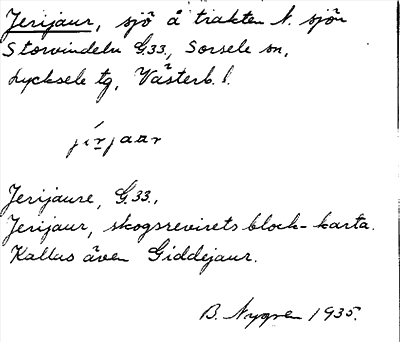 Jerijaur, sjö å trakten N. sjön
Storvindeln G.33., Sorsele sn,
Lycksele tg, Västerb. l.
jírjaar
Jerijaure, G.33.,
Jerijaur, skogsrevirets block-karta.
Kallas även Giddejaur.
B. Nygren 1935.